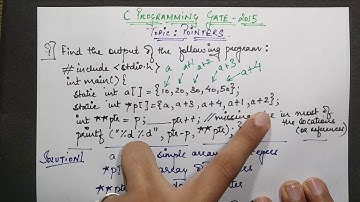 C PROGRAMMING GATE-2015
TOPIC: POINTERS
Q Find the output of the following program:
# include <stdio.h> a a+1 a+2 a+3 a+4
int main() {
static int a[] = {10, 20, 30, 40, 50};
static int *p[] = {a, a+3, a+4, a+1, a+2};
int **ptr = p; ptr++; // missing in most of
printf("%d %d", ptr-p, **ptr); } the locations
(or references)
Solution: a simple array integers
*p[]
**